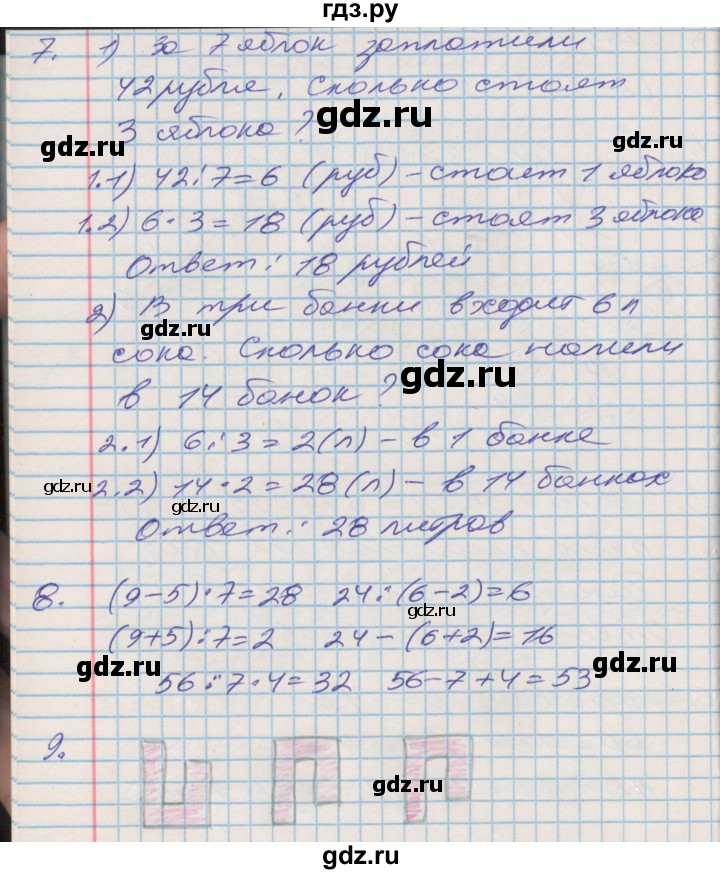 гдз.ру
7. 1) За 7 яблок заплатили
42 рубля. Сколько стоят
3 яблока?
gdz.ru
gdz.ru
1.1) 42:7=6 (руб) – стоит 1 яблоко
1.2) 6·3=18 (руб) – стоят 3 яблока
gdz.ru
gdz.ru
Ответ: 18 рублей
2) В три банки входит 6 л
gdz.ru
сока. Сколько сока налили
gdz.ru
в 14 банок?
2.1) 6:3=2(л) – в 1 банке
gdz.ru
2.2) 14·2=28(л) – в 14 банках
gdz.ru
Ответ: 28 литров
8. (9-5)·7=28 24:(6-2)=6
gdz.ru
(9+5):7=2 24-(6+2)=16
gdz.ru
gdz.ru
56:7·4=32 56-7+4=53
9.
gdz.ru
gdz.ru